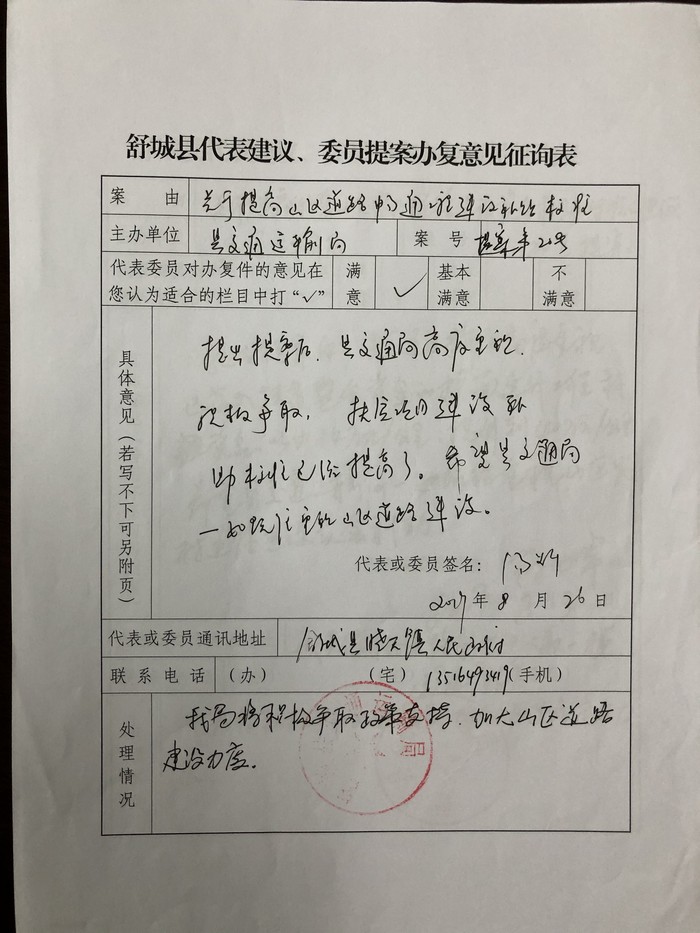 舒城县代表建议、委员提案办复意见征询表
案 由 关于提高山区道路畅通工程建设补助标准
主办单位 县交通运输局 案 号 提案第21号
代表委员对办复件的意见在
您认为适合的栏目中打“√”
满意 √ 基本满意 不满意
具体意见（若写不下可另附页）
提出提案后，县交通局高度重视，
积极争取，扶贫项目建设补
助标准已经提高了。希望县交通局
一如既往重视山区道路建设。
代表或委员签名：
2017年8月26日
代表或委员通讯地址 舒城县晓天镇人民政府
联系电话 （办） （宅） 13516493419（手机）
处理情况
我局将积极争取政策支持，加大山区道路
建设力度。